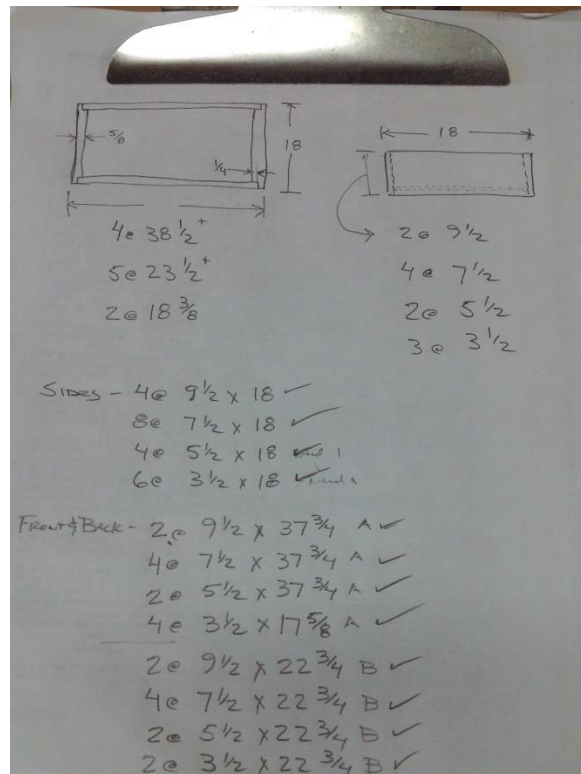 5/8
1/4
18
18
4@ 38 1/2+
5@ 23 1/2+
2@ 18 3/8
2@ 9 1/2
4@ 7 1/2
2@ 5 1/2
3@ 3 1/2
SIDES - 4@ 9 1/2 x 18 ✓
8@ 7 1/2 x 18 ✓
4@ 5 1/2 x 18 ✓
6@ 3 1/2 x 18 ✓
FRONT & BACK - 2@ 9 1/2 x 37 3/4 A ✓
4@ 7 1/2 x 37 3/4 A ✓
2@ 5 1/2 x 37 3/4 A ✓
4@ 3 1/2 x 17 5/8 A ✓
2@ 9 1/2 x 22 3/4 B ✓
4@ 7 1/2 x 22 3/4 B ✓
2@ 5 1/2 x 22 3/4 B ✓
2@ 3 1/2 x 22 3/4 B ✓